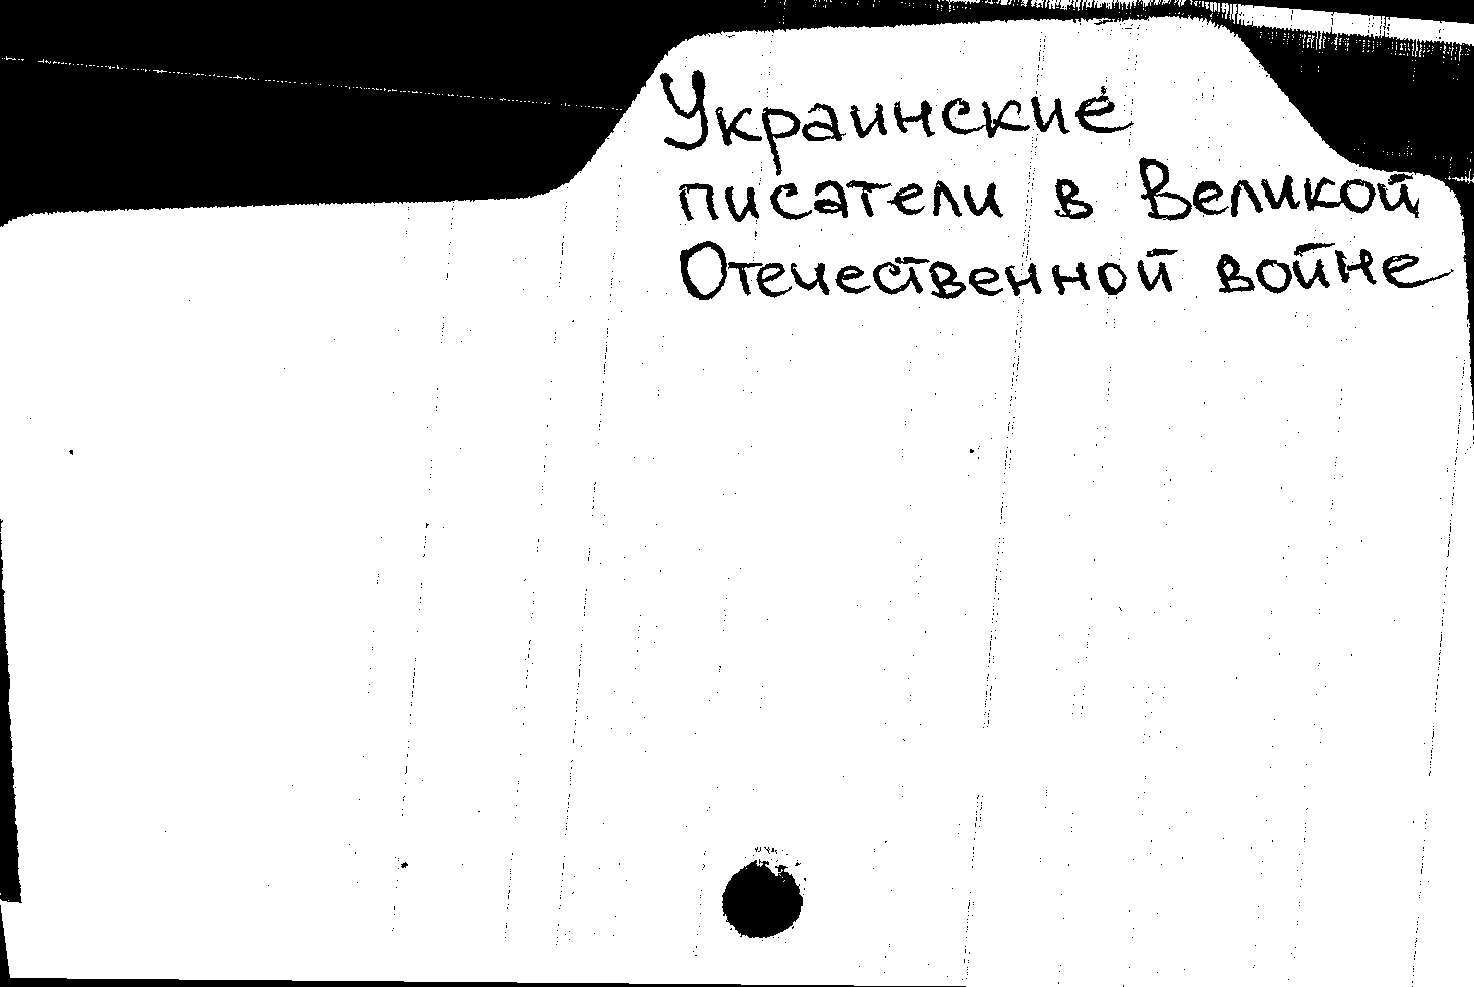 Украинские
писатели в Великой
Отечественной войне